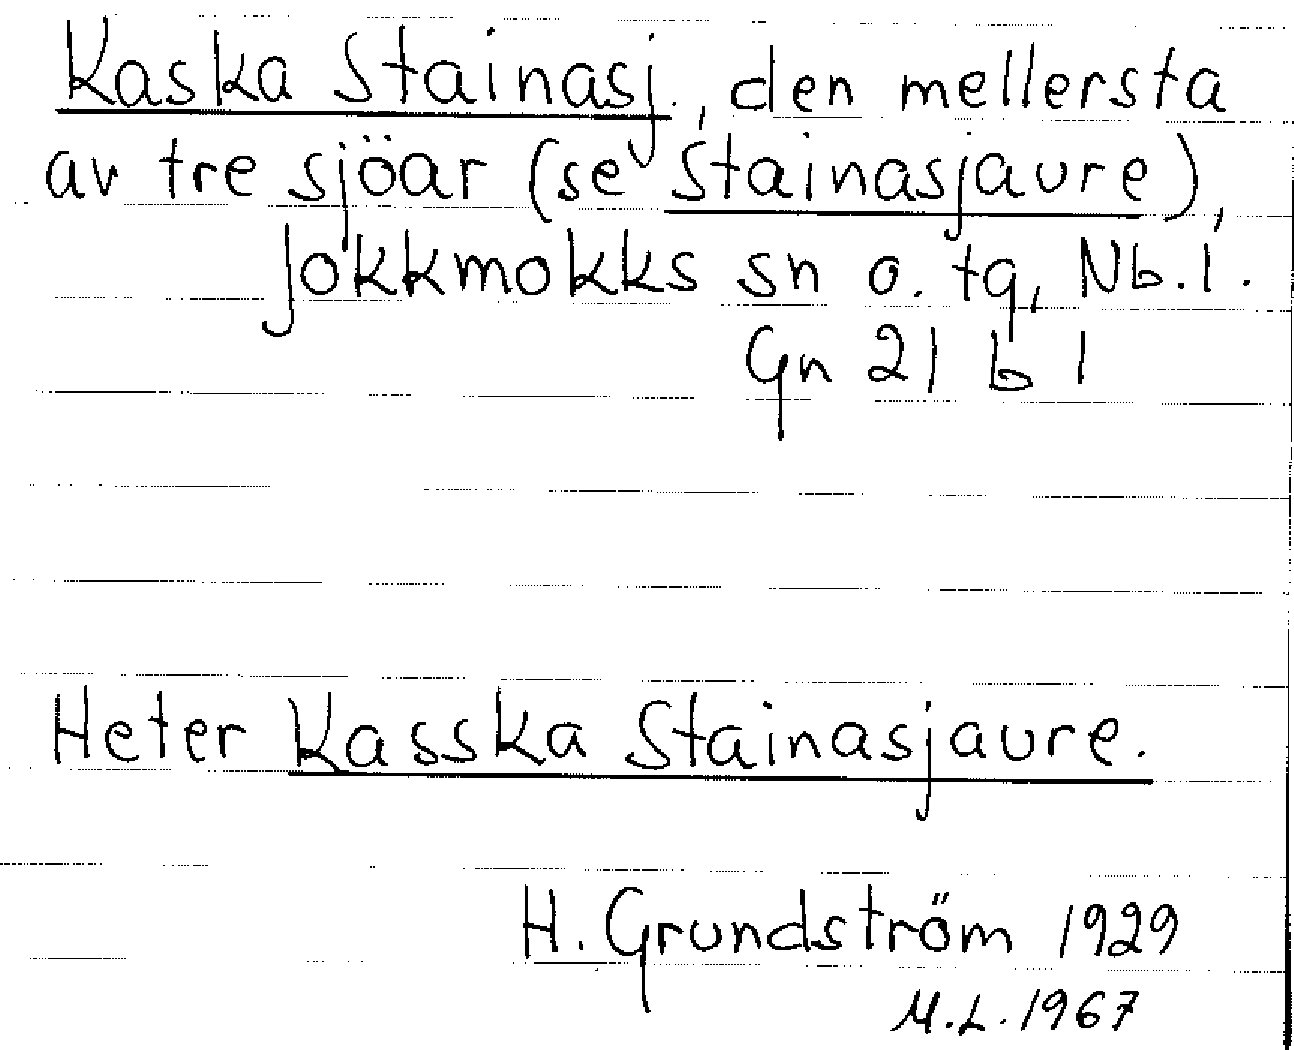 Kaska Stainasj., den mellersta
av tre sjöar (se Stainasjaure),
Jokkmokks sn o. tg, Nb. l.
Gn 21 b 1
Heter Kasska Stainasjaure.
H. Grundström 1929
M.L. 1967